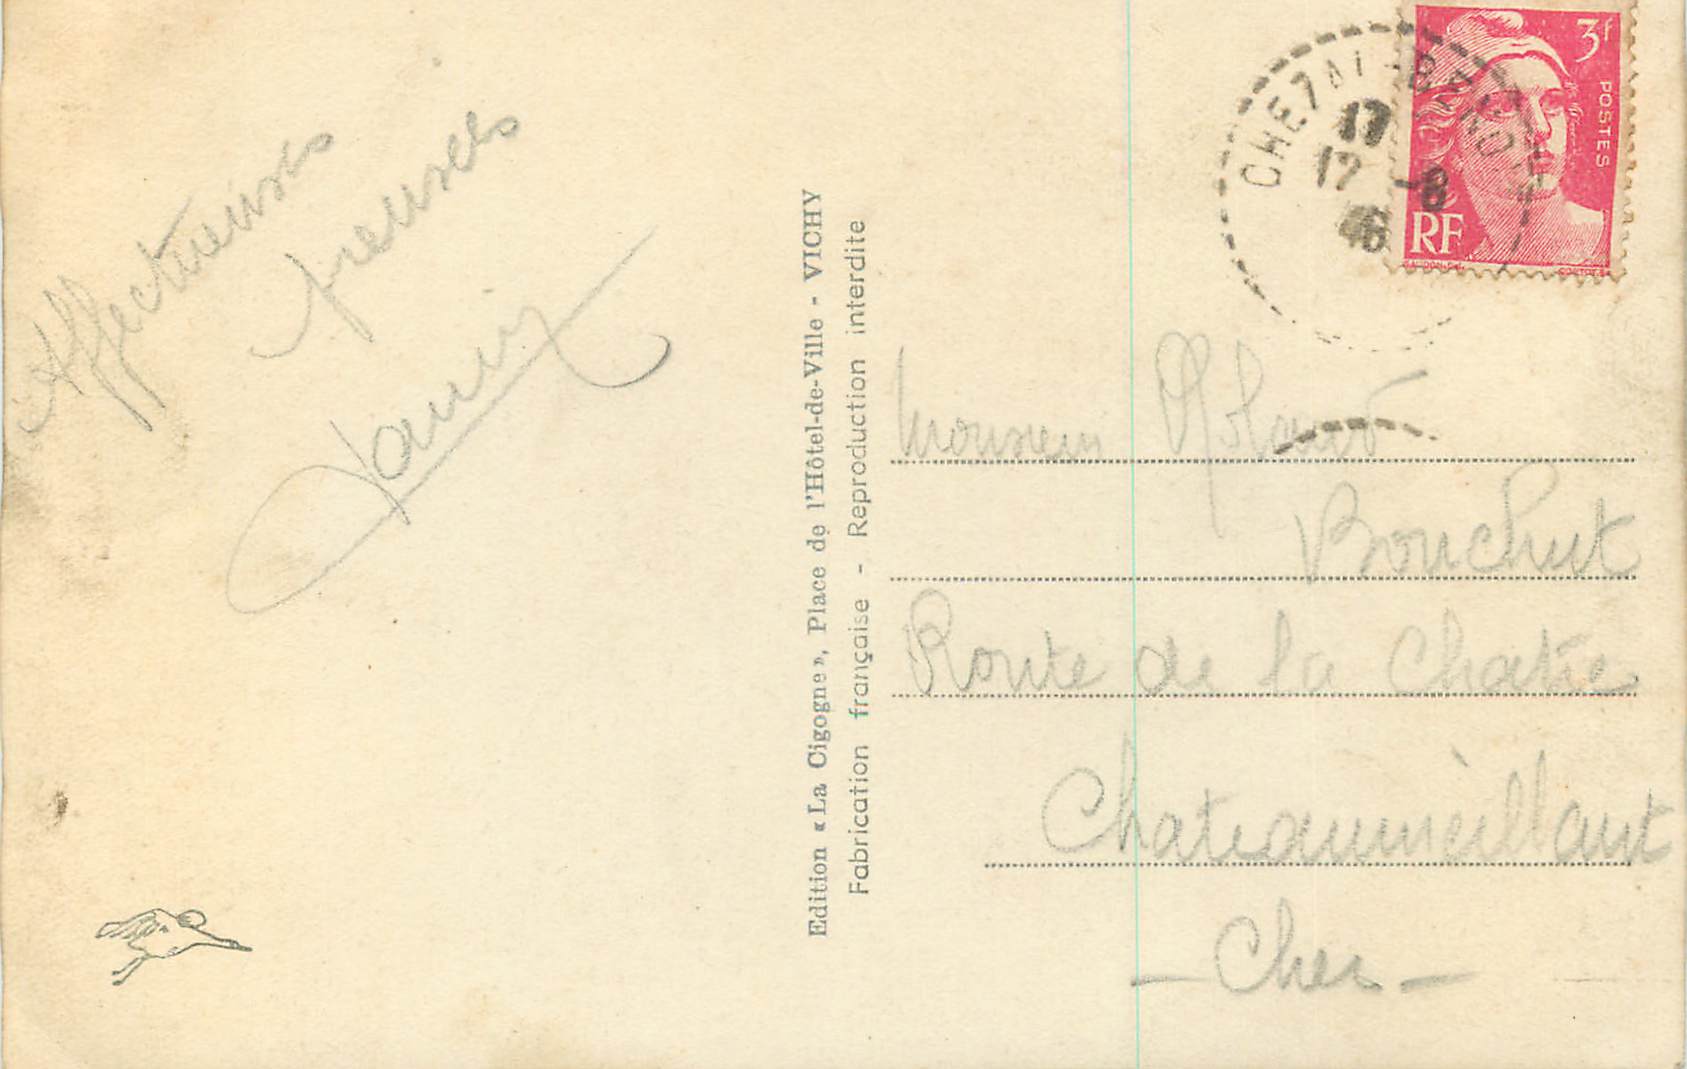 Affectueuses
pensées
Janine
Edition « La Cigogne », Place de l'Hôtel-de-Ville - VICHY
Fabrication française - Reproduction interdite
CHEZAL-BENOIT
17
17 -8
46
3f
POSTES
RF
GANDON-DEL
CORTOT-SC
Monsieur Roland
Bouchut
Route de la Chatre
Chateaumeillant
- Cher -